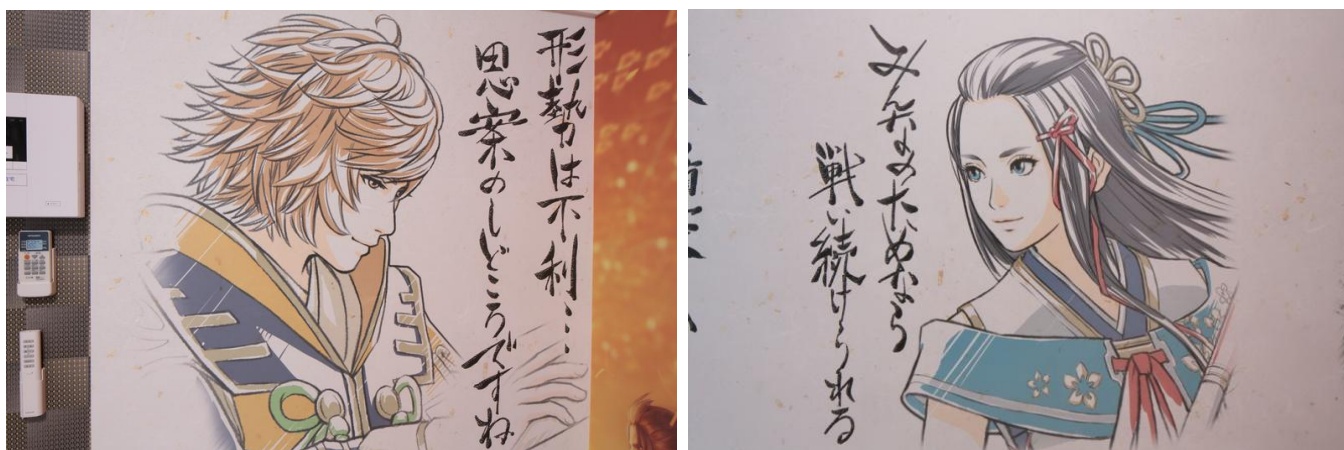 形勢は不利…
思案のしどころですね
みんなのためなら
戦い続けられる